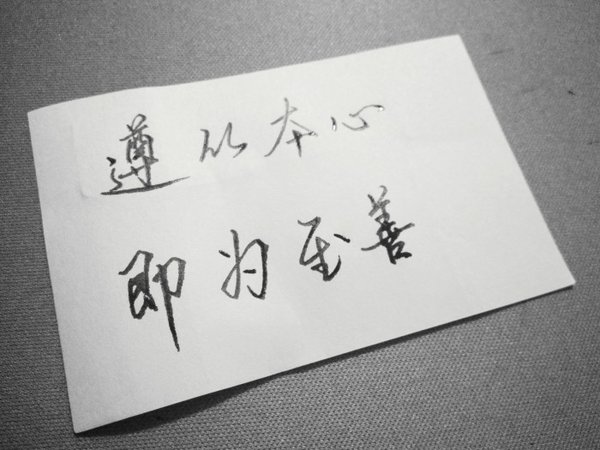 遵以本心
即为至善